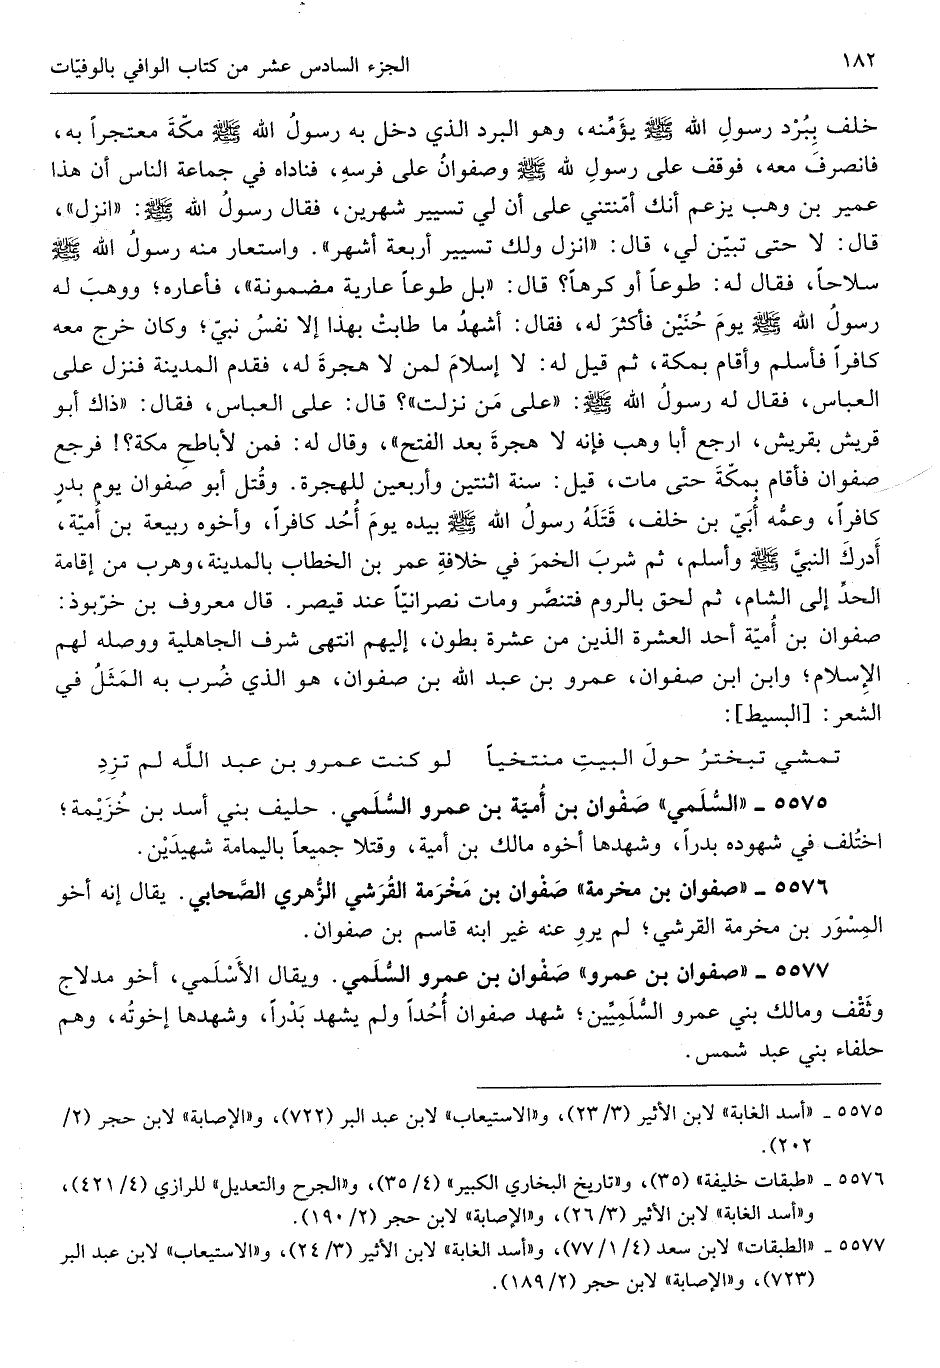 ١٨٢
الجزء السادس عشر من كتاب الوافي بالوفيّات
خلف بِبُرْد رسولِ الله ﷺ يؤَمِّنه، وهو البرد الذي دخل به رسولُ الله ﷺ مكّةَ معتجراً به،
فانصرفَ معه، فوقف على رسولِ لله ﷺ وصفوانُ على فرسهِ، فناداه في جماعة الناس أن هذا
عمير بن وهب يزعم أنك أمّنتني على أن لي تسيير شهرين، فقال رسولُ الله ﷺ: «انزل»،
قال: لا حتى تبيّن لي، قال: «انزل ولك تسيير أربعة أشهر». واستعار منه رسولُ الله ﷺ
سلاحاً، فقال له: طوعاً أو كرهاً؟ قال: «بل طوعاً عارية مضمونة»، فأعاره؛ ووهبَ له
رسولُ الله ﷺ يومَ حُنَيْن فأكثرَ له، فقال: أشهدُ ما طابتْ بهذا إلا نفسُ نبيّ؛ وكان خرج معه
كافراً فأسلم وأقام بمكة، ثم قيل له: لا إسلامَ لمن لا هجرةَ له، فقدم المدينة فنزل على
العباس، فقال له رسولُ الله ﷺ: «على مَن نزلت»؟ قال: على العباس، فقال: «ذاك أبو
قريش بقريش، ارجع أبا وهب فإنه لا هجرةَ بعد الفتح»، وقال له: فمن لأباطحِ مكة؟! فرجع
صفوان فأقام بمكّةَ حتى مات، قيل: سنة اثنتين وأربعين للهجرة. وقُتل أبو صفوان يوم بدرٍ
كافراً، وعمُّه أُبَيّ بن خلف، قَتَلَهُ رسولُ الله ﷺ بيده يومَ أُحُد كافراً، وأخوه ربيعة بن أُميّة،
أَدركَ النبيَّ ﷺ وأسلم، ثم شربَ الخمرَ في خلافةِ عمر بن الخطاب بالمدينة، وهرب من إقامة
الحدِّ إلى الشام، ثم لحق بالروم فتنصَّر ومات نصرانيّاً عند قيصر. قال معروف بن خرّبوذ:
صفوان بن أُميّة أحد العشرة الذين من عشرة بطون، إليهم انتهى شرف الجاهلية ووصله لهم
الإِسلام؛ وابن ابن صفوان، عمرو بن عبد الله بن صفوان، هو الذي ضُرب به المَثَلُ في
الشعر: [البسيط]:
تمشي تبخترُ حولَ البيتِ منتخياً لو كنت عمرو بن عبد اللَّه لم تزدِ
٥٥٧٥ ـ «السُّلَمي» صَفْوان بن أُميّة بن عمرو السُّلَمي. حليف بني أسد بن خُزَيْمة؛
اختُلف في شهوده بدراً، وشهدها أخوه مالك بن أمية، وقتلا جميعاً باليمامة شهيدَيْن.
٥٥٧٦ ـ «صفوان بن مخرمة» صَفْوان بن مَخْرَمة القُرَشي الزُّهري الصَّحابي. يقال إنه أخو
المِسْوَر بن مخرمة القرشي؛ لم يروِ عنه غير ابنه قاسم بن صفوان.
٥٥٧٧ ـ «صفوان بن عمرو» صَفْوان بن عمرو السُّلَمي. ويقال الأَسْلَمي، أخو مدلاج
وثَقْف ومالك بني عمرو السُّلَمِيِّين؛ شهد صفوان أُحُداً ولم يشهد بَدْراً، وشهدها إخوتُه، وهم
حلفاء بني عبد شمس.
٥٥٧٥ ـ «أسد الغابة» لابن الأثير (٢٣/٣)، و«الاستيعاب» لابن عبد البر (٧٢٢)، و«الإصابة» لابن حجر (٢/
٢٠٢).
٥٥٧٦ ـ «طبقات خليفة» (٣٥)، و«تاريخ البخاري الكبير» (٣٥/٤)، و«الجرح والتعديل» للرازي (٤٢١/٤)،
و«أسد الغابة» لابن الأثير (٢٦/٣)، و«الإصابة» لابن حجر (١٩٠/٢).
٥٥٧٧ ـ «الطبقات» لابن سعد (٧٧/١/٤)، و«أسد الغابة» لابن الأثير (٢٤/٣)، و«الاستيعاب» لابن عبد البر
(٧٢٣)، و«الإصابة» لابن حجر (١٨٩/٢).